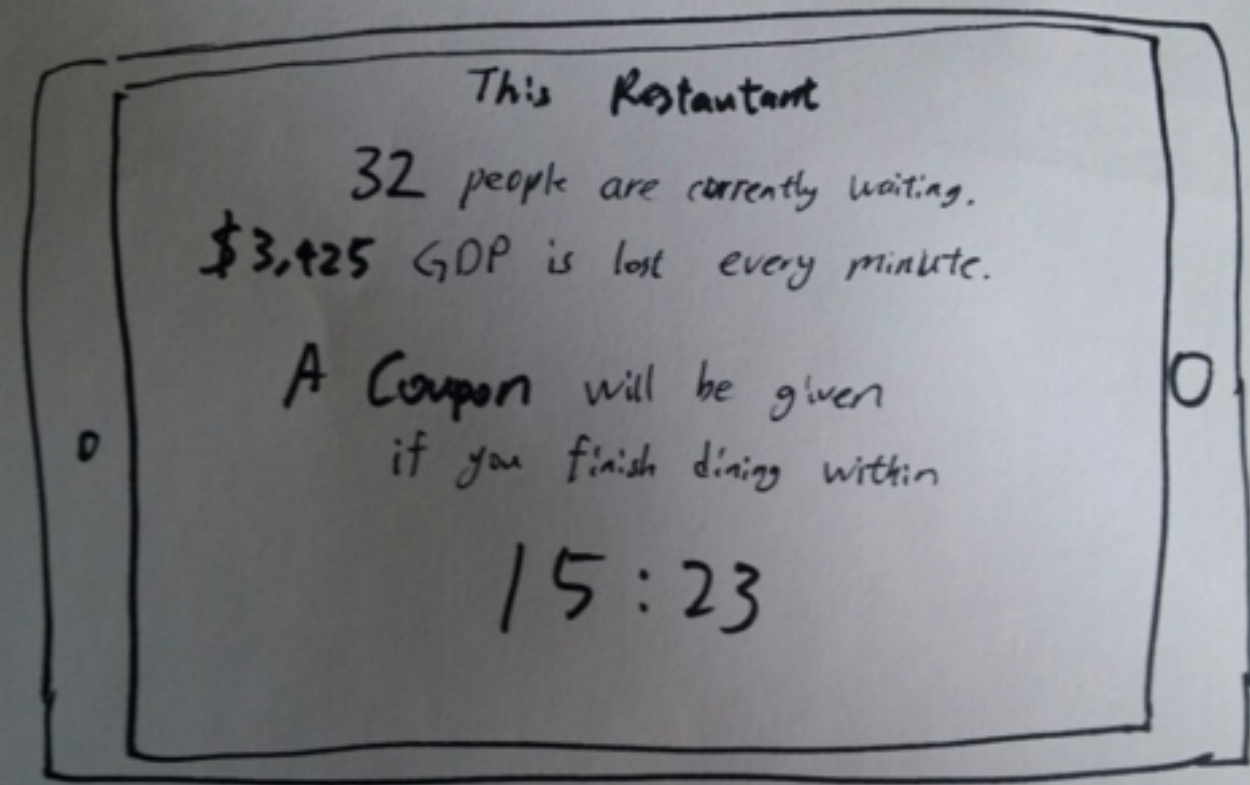 This Restautant
32 people are currently waiting.
$3,425 GDP is lost every minute.
A Coupon will be given
if you finish dining within
15:23